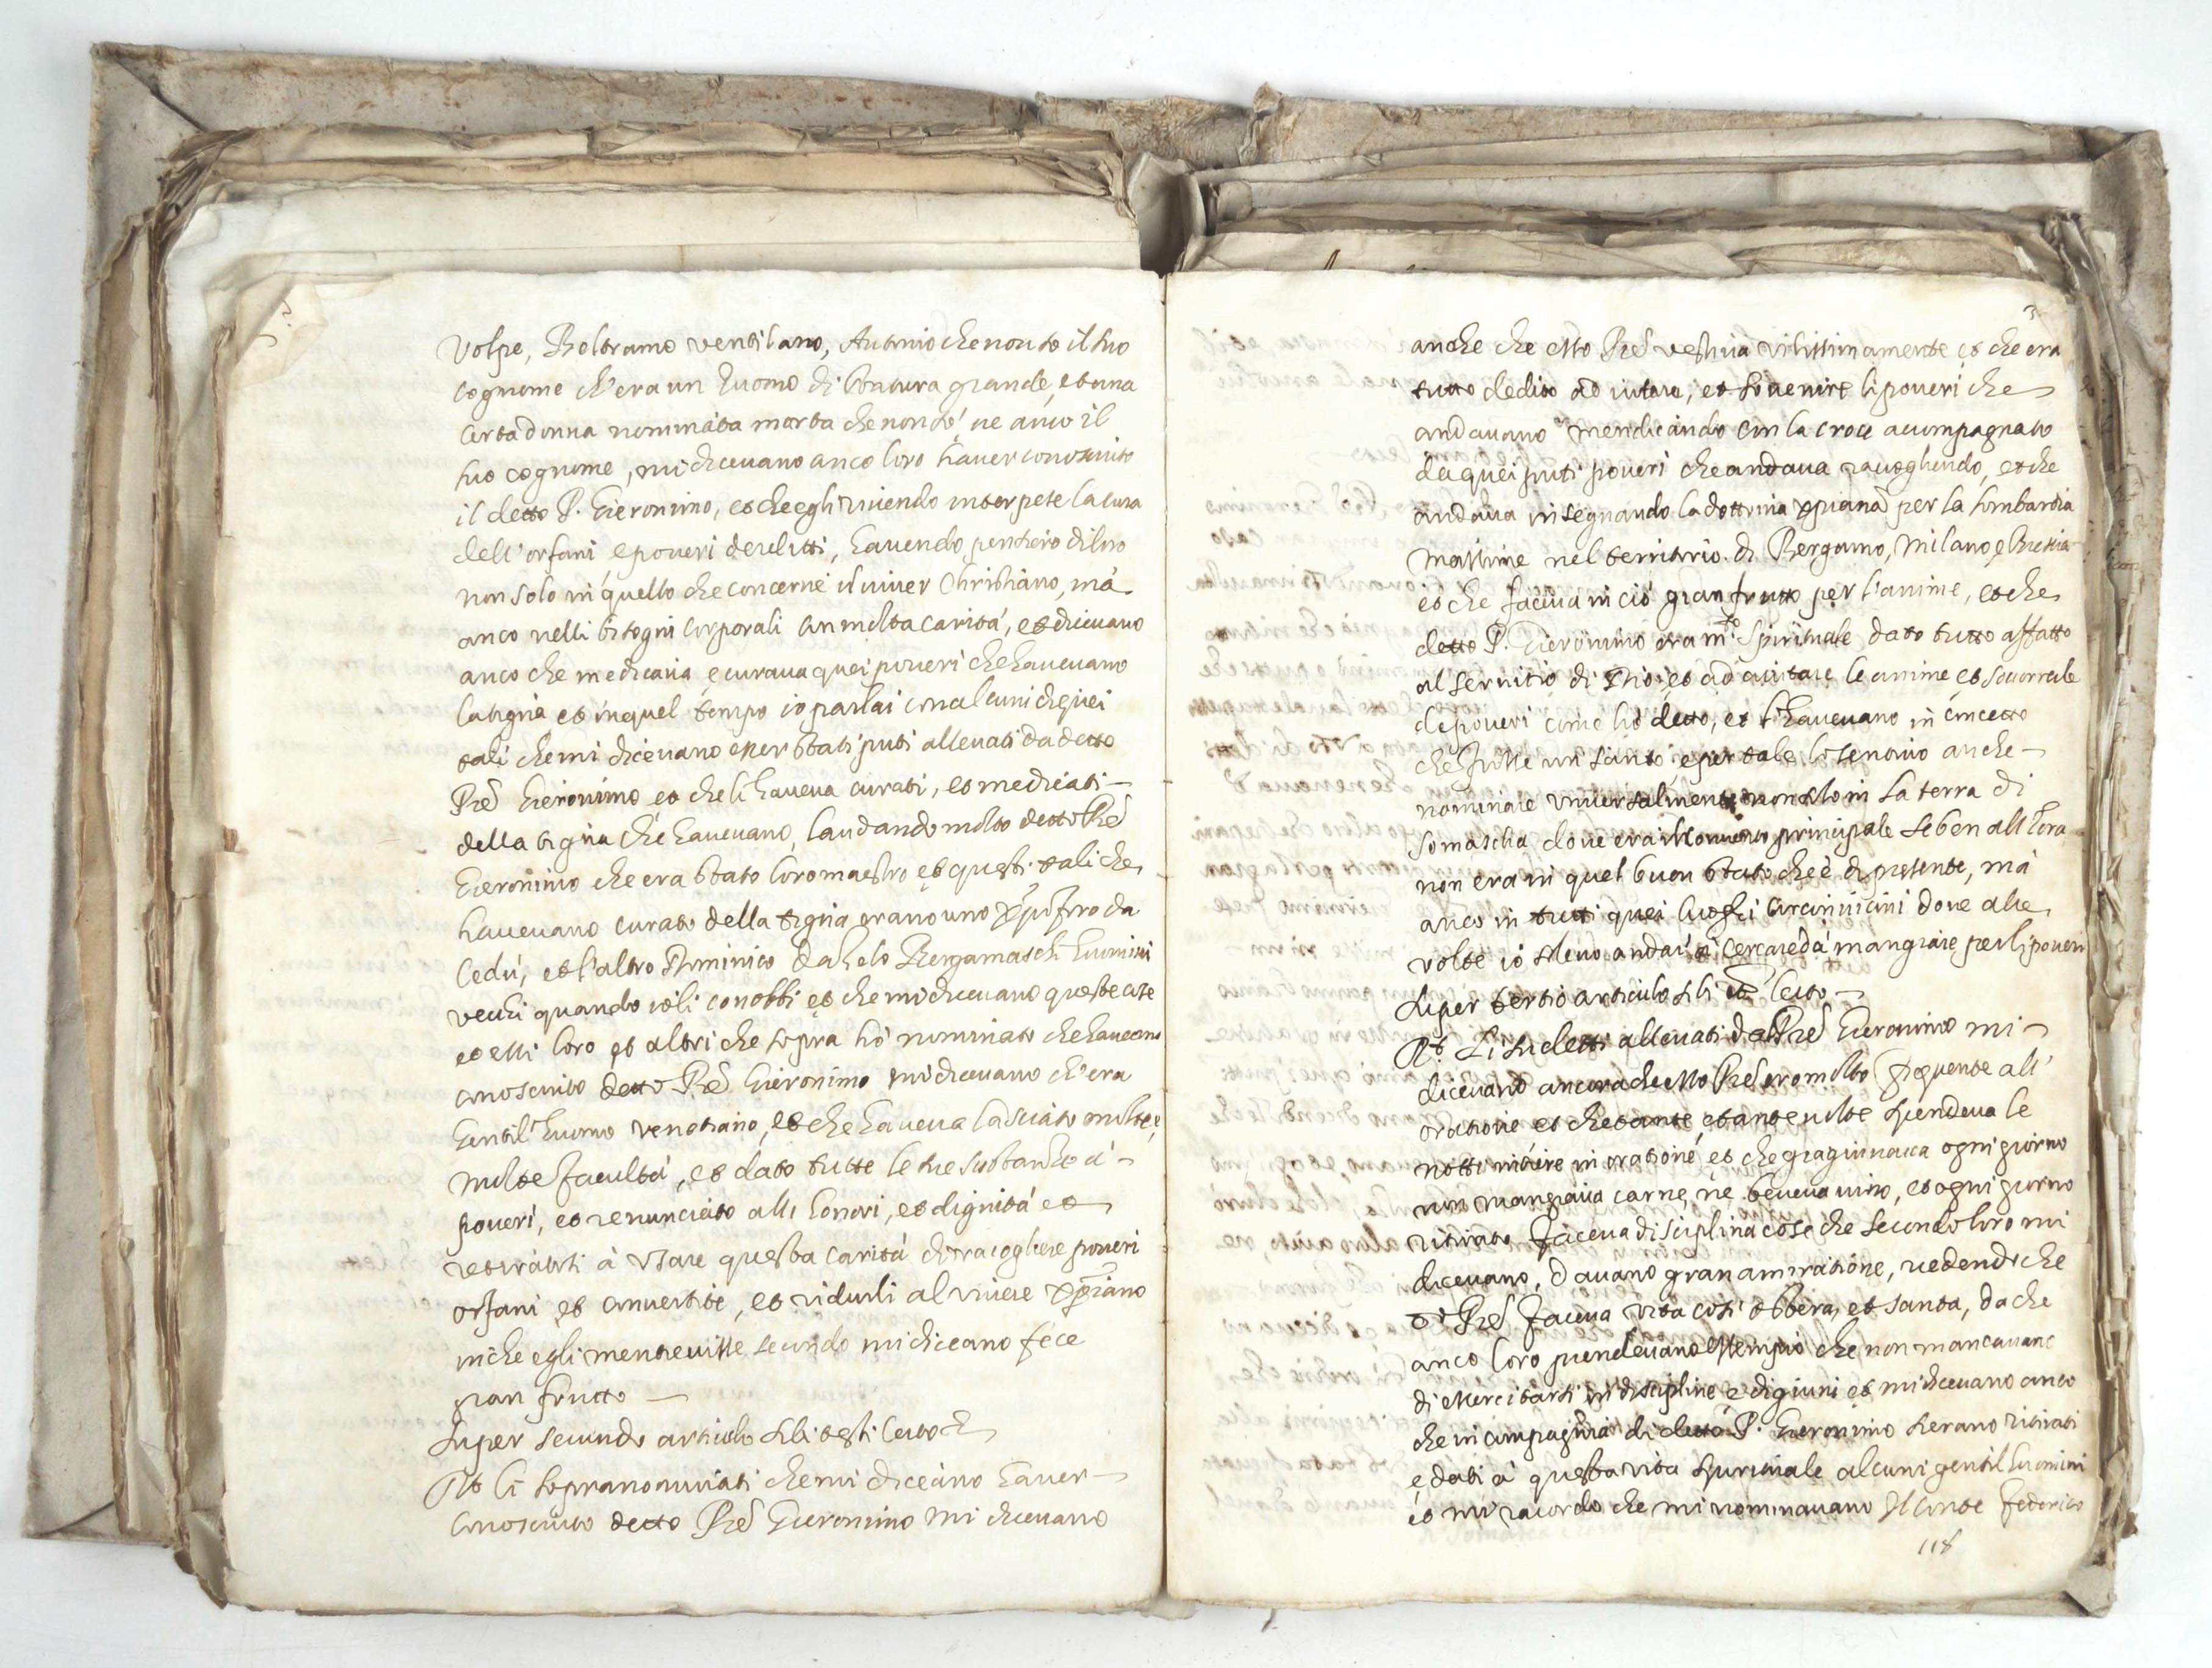 Volpe, Beltramo ventilano, Antonio che non so il suo
cognome ch'era un huomo di statura grande, et una
certa donna nominata marta che non só ne anco il
suo cognome, mi dicevano anco loro haver conosciuto
il detto P. Gieronimo, et che egli vivendo interpete la cura
dell'orfani, e poveri derelitti, havendo pensiero di loro
non solo in quello che concerne il viver Christiano, mà
anco nelli bisogni corporali con molta carità, et dicevano
anco che medicava, e curava quei poveri che havevano
la tigna et in quel tempo io parlai con alcuni di quei
tali che mi dicevano esser stati puti allevati da detto
Pre Gieronimo et che li haveva curati, et medicati
della tigna che havevano, laudando molto detto Pre
Gieronimo che era stato loro maestro et questi tali che
havevano curato della tigna erano uno da
Cedù, et l'altro Dominico Bergamaschi huomini
vecchi quando io li conobbi et che mi dicevano queste cose
et essi loro et altri che sopra hò nominato che havevano
conosciuto detto Pre Gieronimo mi dicevano ch'era
gentil'huomo venetiano, et che haveva lasciato molte, e
molte facultà, et dato tutte le sue substantie à
poveri, et renunciato alli honori, et dignità et
retiratosi à usare questa carità di racogliere poveri
orfani, et convertite, et ridurli al vivere xp̄iano
in che egli mentre visse secondo mi diceano fece
gran frutto
Super secundo articulo sibi testi lecto
Rt li sopranominati che mi diceàno haver
conosciuto detto Pre Gieronimo mi dicevano
3
anche che esso Pre vestiva vilissimamente et che era
tutto dedito ad iutare, et sovenire li poveri che
andavano mendicando con la croce acompagnato
da quei puti poveri che andava racogliendo, et che
andava insegnando la dottrina xp̄iana per la Lombardia
massime nel territorio di Bergamo, Milano, e Bressia
et che faceva in ciò gran frutto per l'anime, et che
detto P. Gieronimo era m.to spirituale, dato tutto affatto
al servitio di Dio, et ad aiutare le anime et
de poveri come hò detto, et l'havevano in concetto
che fosse un santo, e per tale lo senono anche
nominare universalmente non solo in la terra di
Somascha dove era il convento principale se ben all'hora
non era in quel buon stato che è di presente, mà
anco in tutti quei luoghi circonvicini dove alle
volte io solevo andar à cercare da mangiare per li poveri
Super tertio articulo sibi lecto
Rt. Li sudetti allevati dal Pre Gieronimo mi
dicevano ancora che esso Pre era molto frequente all'
oratione et che tante, et tante volte spendeva le
notti intiere in oratione et che giagiunava ogni giorno
non mangiava carne, ne beveva vino, et ogni giorno
ritirato faceva disciplina cose che secondo loro mi
dicevano, davano gran amiratione, vedendo che
Pre faceva vita così et santa, da che
anco loro prendevano essempio che non mancavano
di essercitarsi in discipline e digiuni et mi dicevano anco
che in compagnia di detto P. Gieronimo s'erano ritirati
e dati à questa vita spirituale alcuni gentil'huomini
et mi racordo che mi nominavano Il Conte Federico
118